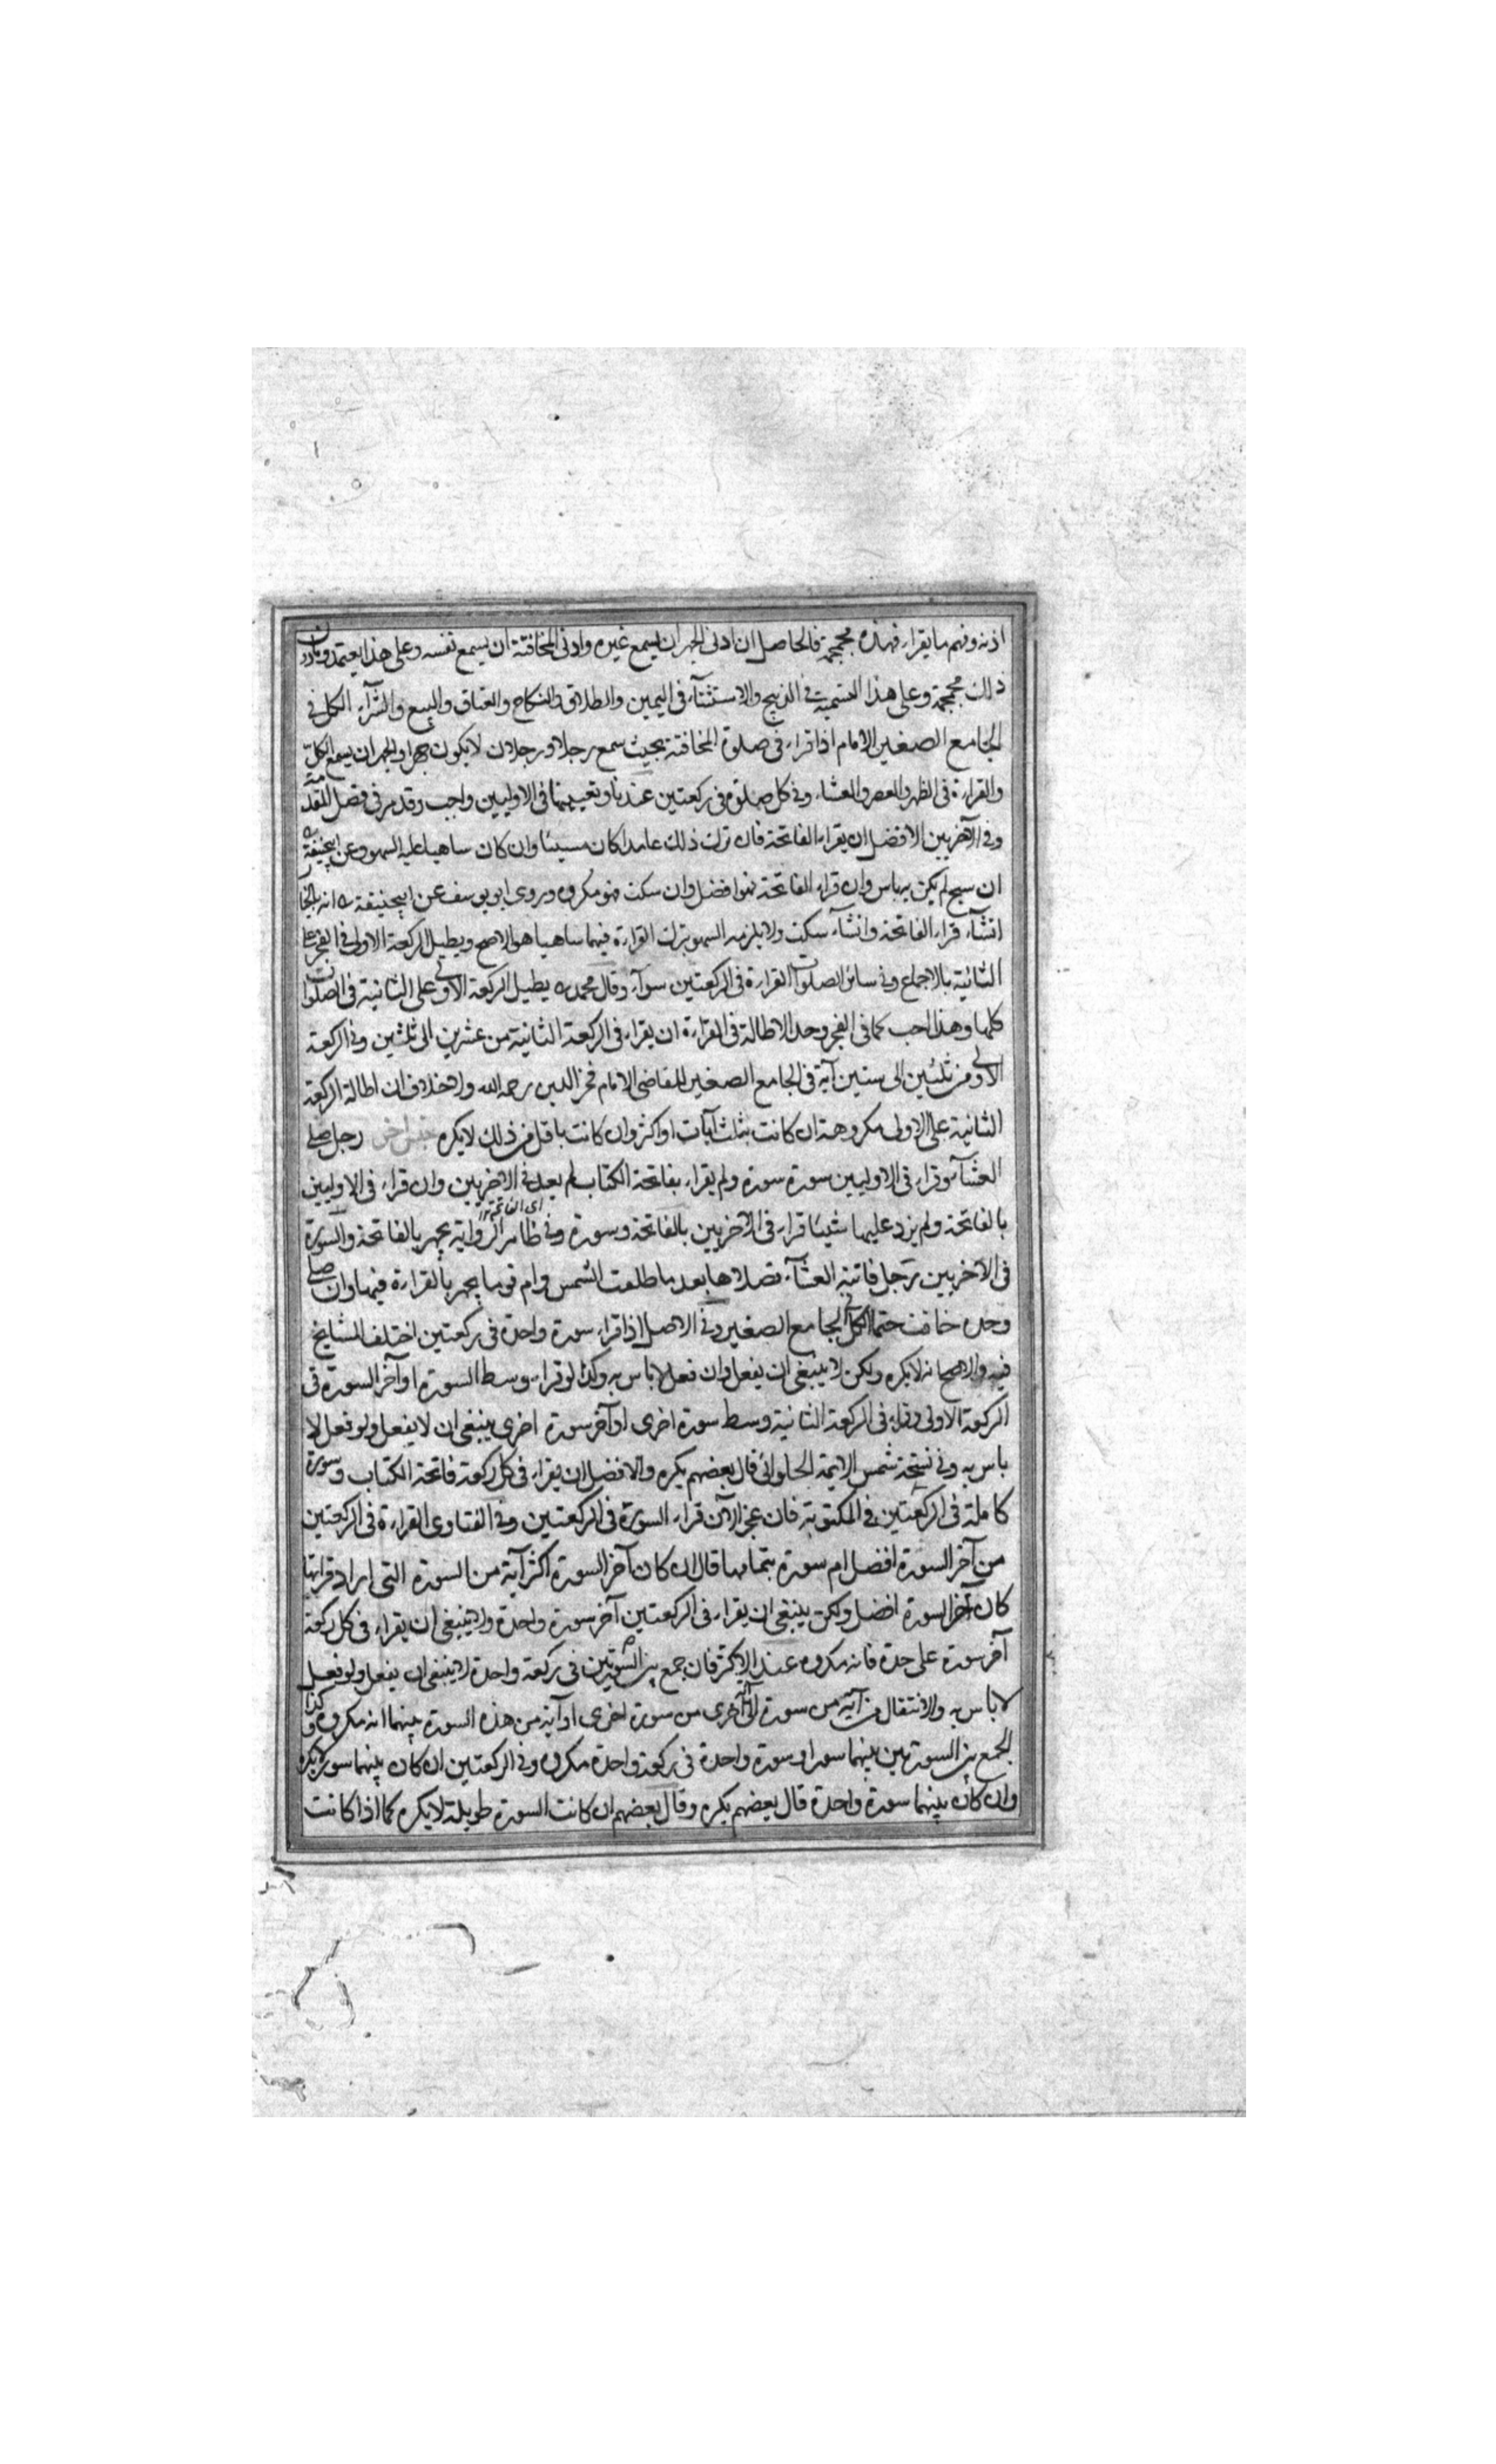 اذنه وفهم ما يقراء فهذه مجمجمة فالحاصل ان ادنى الجهر ان يسمع غيره وادنى المخافتة ان يسمع نفسه وعلى هذا يعتمد وما دون
ذلك مجمجمة وعلى هذا التسمية في الذبيح والاستثنآء في اليمين والطلاق والنكاح والعتاق والبيع والشرآء الكل في
الجامع الصغير الامام اذا قراء في صلوة المخافتة بحيث سمع رجل او رجلان لا يكون جهرا والجهر ان يسمع الكل
والقراءة في الظهر والعصر والعشاء وفي كل صلوة في ركعتين عندنا وتعيينها في الاوليين واجب وقد مر في فصل المقدمة
وفي الآخريين الافضل ان يقراء الفاتحة فان ترك ذلك عامدا كان مسيئا وان كان ساهيا عليه السهو وعن ابيحنيفة
ان سبح لم يكن به باس وان قراء الفاتحة فهو افضل وان سكت فهو مكروه وروى ابو يوسف عن ابيحنيفة انه بالخيار
انشآء قراء الفاتحة وانشآء سكت ولا يلزمه السهو بترك القراءة فيهما ساهيا هو الاصح ويطيل الركعة الاولى في الفجر على
الثانية بالاجماع وفي سائر الصلوات القراءة في الركعتين سوآء وقال محمد يطيل الركعة الاولى على الثانية في الصلوات
كلها وهذا احب كما في الفجر وحد الاطالة في القراءة ان يقراء في الركعة الثانية من عشرين الى ثلثين وفي الركعة
الاولى من ثلثين الى ستين آية في الجامع الصغير للقاضي الامام فخر الدين رحمه الله ولا خلاف ان اطالة الركعة
الثانية على الاولى مكروهة ان كانت بثلث آيات او اكثر وان كانت باقل من ذلك لا يكره جنس اخر رجل صلى
العشآء وقراء في الاوليين سورة سورة ولم يقراء بفاتحة الكتاب لم يعد في الاخريين وان قراء في الاوليين
بالفاتحة ولم يزد عليها شيئا قراء في الآخريين بالفاتحة وسورة وفي ظاهر الرواية يجهر بالفاتحة والسورة
في الآخريين رجل فاتته العشآء فصلاها بعد ما طلعت الشمس وام قوما يجهر بالقراءة فيها وان صلى
وحده خافت حتما الكل في الجامع الصغير وفي الاصل اذا قراء سورة واحدة في ركعتين اختلف المشايخ
فيه والاصح انه لا يكره ولكن لا ينبغي ان يفعل وان فعل لا باس به وكذا لو قراء وسط السورة او آخر السورة في
الركعة الاولى وقراء في الركعة الثانية وسط سورة اخرى او آخر سورة اخرى ينبغي ان لا يفعل ولو فعل لا
باس به وفي نسخة شمس الايمة الحلوائي قال بعضهم يكره والافضل ان يقراء في كل ركعة فاتحة الكتاب وسورة
كاملة في الركعتين في المكتوبة فان عجز الآن قراء السورة في الركعتين وفي الفتاوى القراءة في الركعتين
من آخر السورة افضل ام سورة بتمامها قال ان كان آخر السورة اكثر آية من السورة التي اراد قراتها
كان آخر السورة افضل ولكن ينبغي ان يقراء في الركعتين آخر سورة واحدة ولا ينبغي ان يقراء في كل ركعة
آخر سورة على حدة فانه مكروه عند الاكثر فان جمع بين السورتين في ركعة واحدة لا ينبغي ان يفعل ولو فعل
لا باس به والانتقال من آية من سورة الى آية اخرى من سورة اخرى او آية من هذه السورة بينهما انه مكروه وكذا
الجمع بين السورتين بينهما سور او سورة واحدة في ركعة واحدة مكروه وفي الركعتين ان كان بينهما سور لا يكره
وان كان بينهما سورة واحدة قال بعضهم يكره وقال بعضهم ان كانت السورة طويلة لا يكره كما اذا كانت